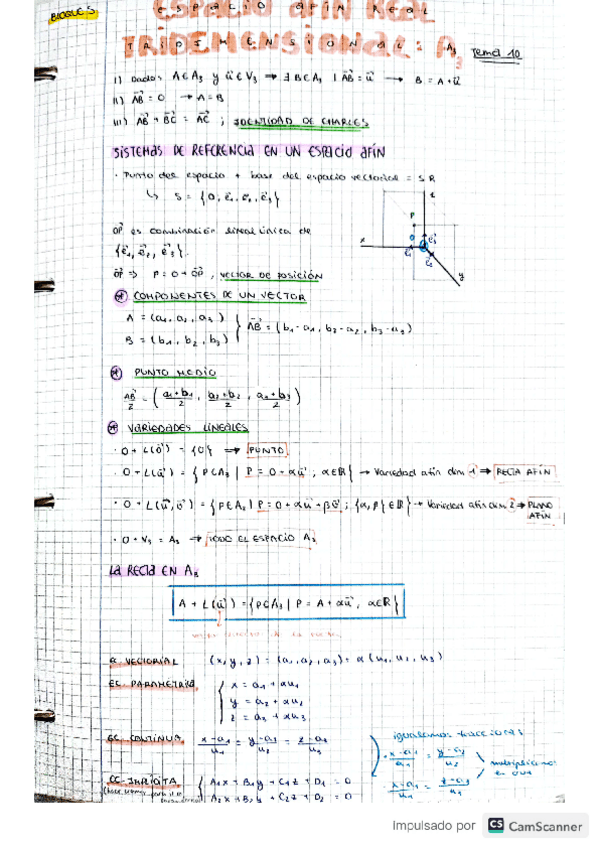 BLOQUE 5
ESPACIO AFÍN REAL
TRIDIMENSIONAL: A₃ Tema 10
i) Dados A∈A₃ y u⃗∈V₃ ⇒ ∃ B∈A₃ | AB⃗ = u⃗ → B = A+u⃗
ii) AB⃗ = 0 → A=B
iii) AB⃗ + BC⃗ = AC⃗ ; IDENTIDAD DE CHARLES
SISTEMAS DE REFERENCIA EN UN ESPACIO AFÍN
· Punto del espacio + base del espacio vectorial = S.R
↳ S = {O, e⃗₁, e⃗₂, e⃗₃}
z
P
O
e⃗₃
x
e⃗₁
e⃗₂
y
OP⃗ es combinación lineal única de
{e⃗₁, e⃗₂, e⃗₃}.
OP⃗ ⇒ P = O + OP⃗, VECTOR DE POSICIÓN
COMPONENTES DE UN VECTOR
A = (a₁, a₂, a₃)
B = (b₁, b₂, b₃)
AB⃗ = (b₁-a₁, b₂-a₂, b₃-a₃)
PUNTO MEDIO
AB⃗/2 = (a₁+b₁/2, a₂+b₂/2, a₃+b₃/2)
VARIEDADES LINEALES
· O + L(0⃗) = {O} ⇒ PUNTO
· O + L(u⃗) = {P∈A₃ | P = O + αu⃗, α∈ℝ} → Variedad afín dim 1 ⇒ RECTA AFÍN
· O + L(u⃗, v⃗) = {P∈A₃ | P = O + αu⃗ + βv⃗ ; {α, β} ∈ ℝ} → Variedad afín dim 2 ⇒ PLANO
AFÍN
· O + V₃ = A₃ → TODO EL ESPACIO A₃
LA RECTA EN A₃
A + L(u⃗) = {P∈A₃ | P = A + αu⃗, α∈ℝ}
vector director de la recta
EC VECTORIAL (x, y, z) = (a₁, a₂, a₃) + α (u₁, u₂, u₃)
EC. PARAMÉTRICA
x = a₁ + αu₁
y = a₂ + αu₂
z = a₃ + αu₃
EC CONTINUA x-a₁/u₁ = y-a₂/u₂ = z-a₃/u₃
igualamos fracciones
· x-a₁/u₁ = y-a₂/u₂
multiplicamos
en cruz
· x-a₁/u₁ = z-a₃/u₃
EC. IMPLÍCITA
A₁x + B₁y + C₁z + D₁ = 0
A₂x + B₂y + C₂z + D₂ = 0
Impulsado por CS CamScanner